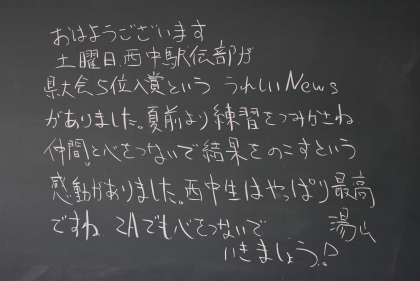 おはようございます
土曜日、西中駅伝部が
県大会5位入賞という うれしいNews
がありました。夏前より練習をつみかさね
仲間と心をつないで結果をのこすという
感動がありました。西中生はやっぱり最高
ですね 2Aでも心をつないで
いきましょう!